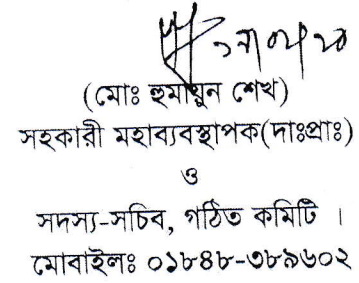 (মোঃ হুমায়ুন শেখ)
সহকারী মহাব্যবস্থাপক(দাঃপ্রাঃ)
ও
সদস্য-সচিব, গঠিত কমিটি ।
মোবাইলঃ ০১৮৪৮-৩৮৯৬০২